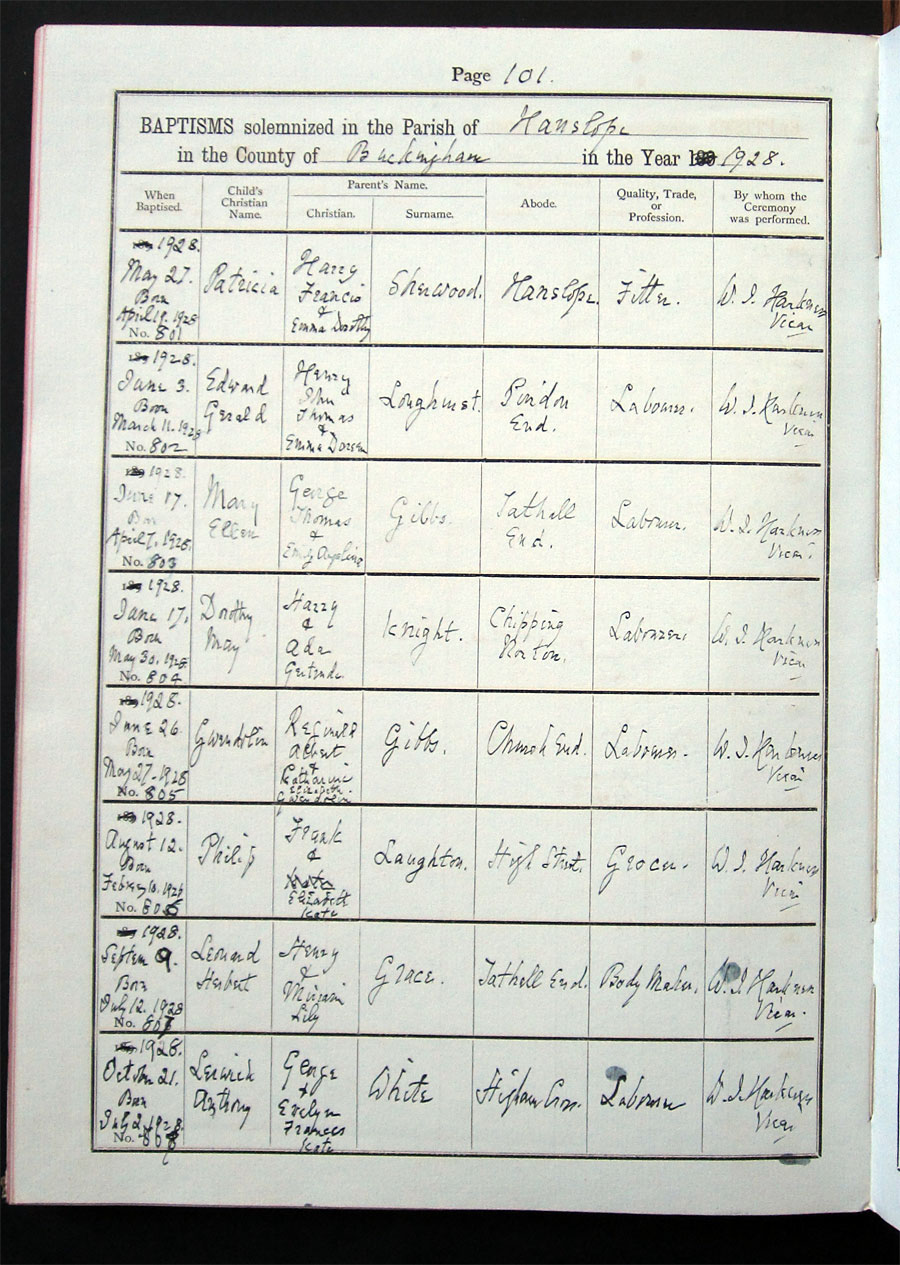 Page 101.
BAPTISMS solemnized in the Parish of Hanslope
in the County of Buckingham in the Year 1928.
When Baptised.
Child's Christian Name.
Parent's Name.
Christian.
Surname.
Abode.
Quality, Trade, or Profession.
By whom the Ceremony was performed.
1928.
May 27.
Born
April 19. 1928
No. 801
Patricia
Harry
Francis
&
Emma Dorothy
Sherwood.
Hanslope.
Fitter.
W. J. Harkness
Vicar
1928.
June 3.
Born
March 11. 1928
No. 802
Edward
Gerald
Henry
John
Thomas
&
Emma Doreen
Longhurst.
Pindon
End.
Labourer.
W. J. Harkness
Vicar
1928.
June 17.
Born
April 7, 1928.
No. 803
Mary
Ellen
George
Thomas
&
Emily
Gibbs.
Tathall
End.
Labourer.
W. J. Harkness
Vicar.
1928.
June 17.
Born
May 30. 1928.
No. 804
Dorothy
May
Harry
&
Ada
Gertrude
Knight.
Chipping
Norton.
Labourer.
W. J. Harkness
Vicar
1928.
June 26
Born
May 27. 1928
No. 805
Gwendolin
Reginald
Albert
&
Katharine
Elizabeth
Gwendolin
Gibbs.
Church End.
Labourer.
W. J. Harkness
Vicar
1928.
August 12.
Born
No. 806
Philip
Frank
&
Elizabeth
Kate
Laughton.
High Street.
Grocer.
W. J. Harkness
Vicar
1928.
Septem 9.
Born
July 12. 1928
No. 807
Leonard
Herbert
Henry
&
Miriam
Lily
Grace.
Tathall End.
Body Maker.
W. J. Harkness
Vicar.
1928.
October 21.
Born
July 2. 1928.
No. 808
Anthony
George
&
Evelyn
Frances
Kate
White
Higham Cross.
Labourer
W. J. Harkness
Vicar